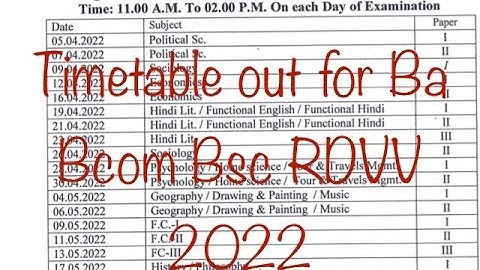 Time: 11.00 A.M. To 02.00 P.M. On each Day of Examination
Date Subject Paper
05.04.2022 Political Sc. I
07.04.2022 Political Sc. II
Timetable out for Ba
16.04.2022 Economics II
19.04.2022 Hindi Lit. / Functional English / Functional Hindi I
21.04.2022 Hindi Lit. / Functional English / Functional Hindi II
Hindi Lit. III
Sociology II
Bcom Bsc RDVV
30.04.2022 Psychology / Home science / Tour & Travels Mgmt. II
04.05.2022 Geography / Drawing & Painting / Music I
06.05.2022 Geography / Drawing & Painting / Music II
09.05.2022 F.C.-I I
11.05.2022 F.C-II II
13.05.2022 FC-III III
2022
17.05.2022 History / Philosophy I